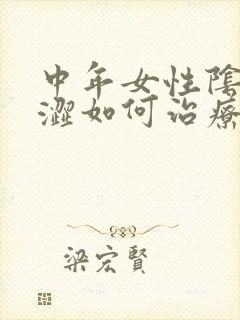 中年女性陰
澀如何治療
梁宏賢